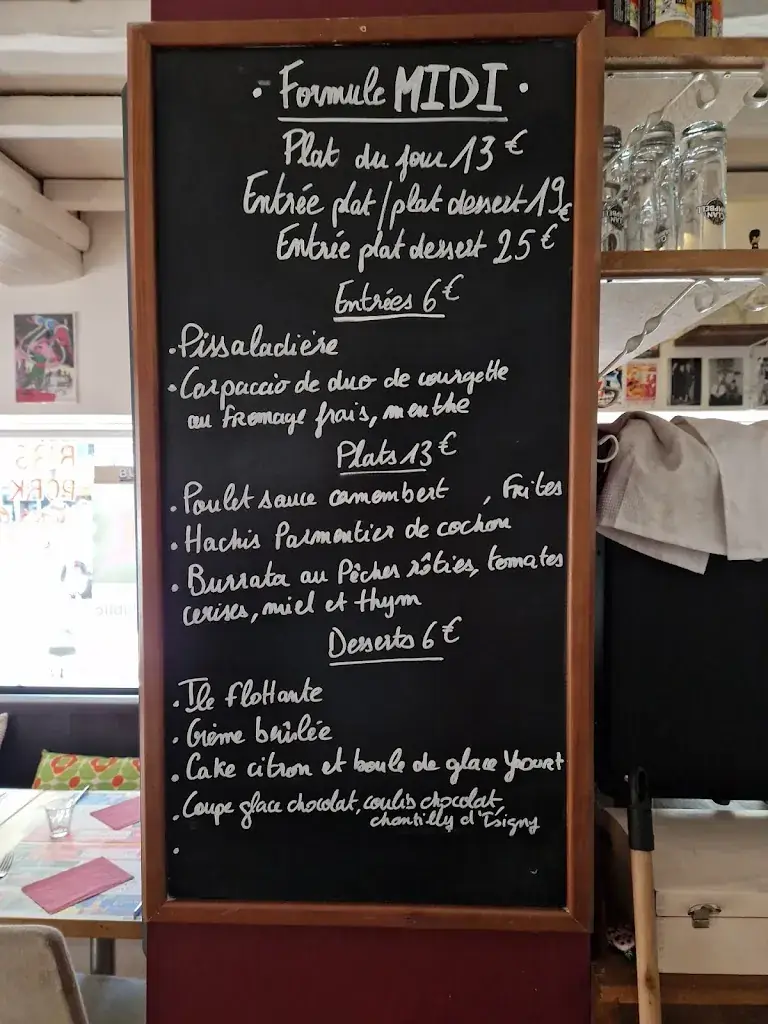 · Formule MIDI ·
Plat du jour 13€
Entrée plat / plat dessert 19€
Entrée plat dessert 25€
Entrées 6€
· Pissaladière
· Carpaccio de duo de courgette
au fromage frais, menthe
Plats 13€
· Poulet sauce camembert , Frites
· Hachis Parmentier de cochon
· Burrata au Pêches rôties, tomates
cerises, miel et thym
Desserts 6€
· Ile flottante
· Crème brûlée
· Cake citron et boule de glace Yaourt
· Coupe glace chocolat, coulis chocolat,
chantilly d'Isigny
·